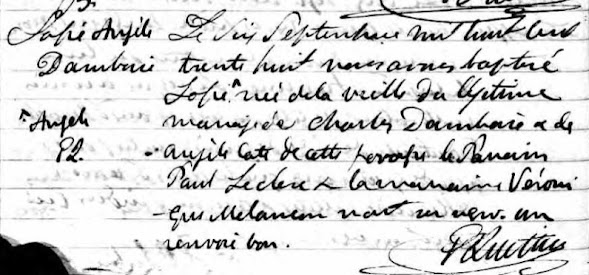 Sofie Angèle Le dix Septembre mil huit cent
Damboise trente huit nous avons baptisé
Sofie ^ née de la veille du légitime
^ Angele mariage de Charles Damboise & de
P2. angèle Coté de cette paroisse le Parrain
Paul Leclerc & la marraine Véroni
-que Melancon n'ont su signer un
renvoi bon.